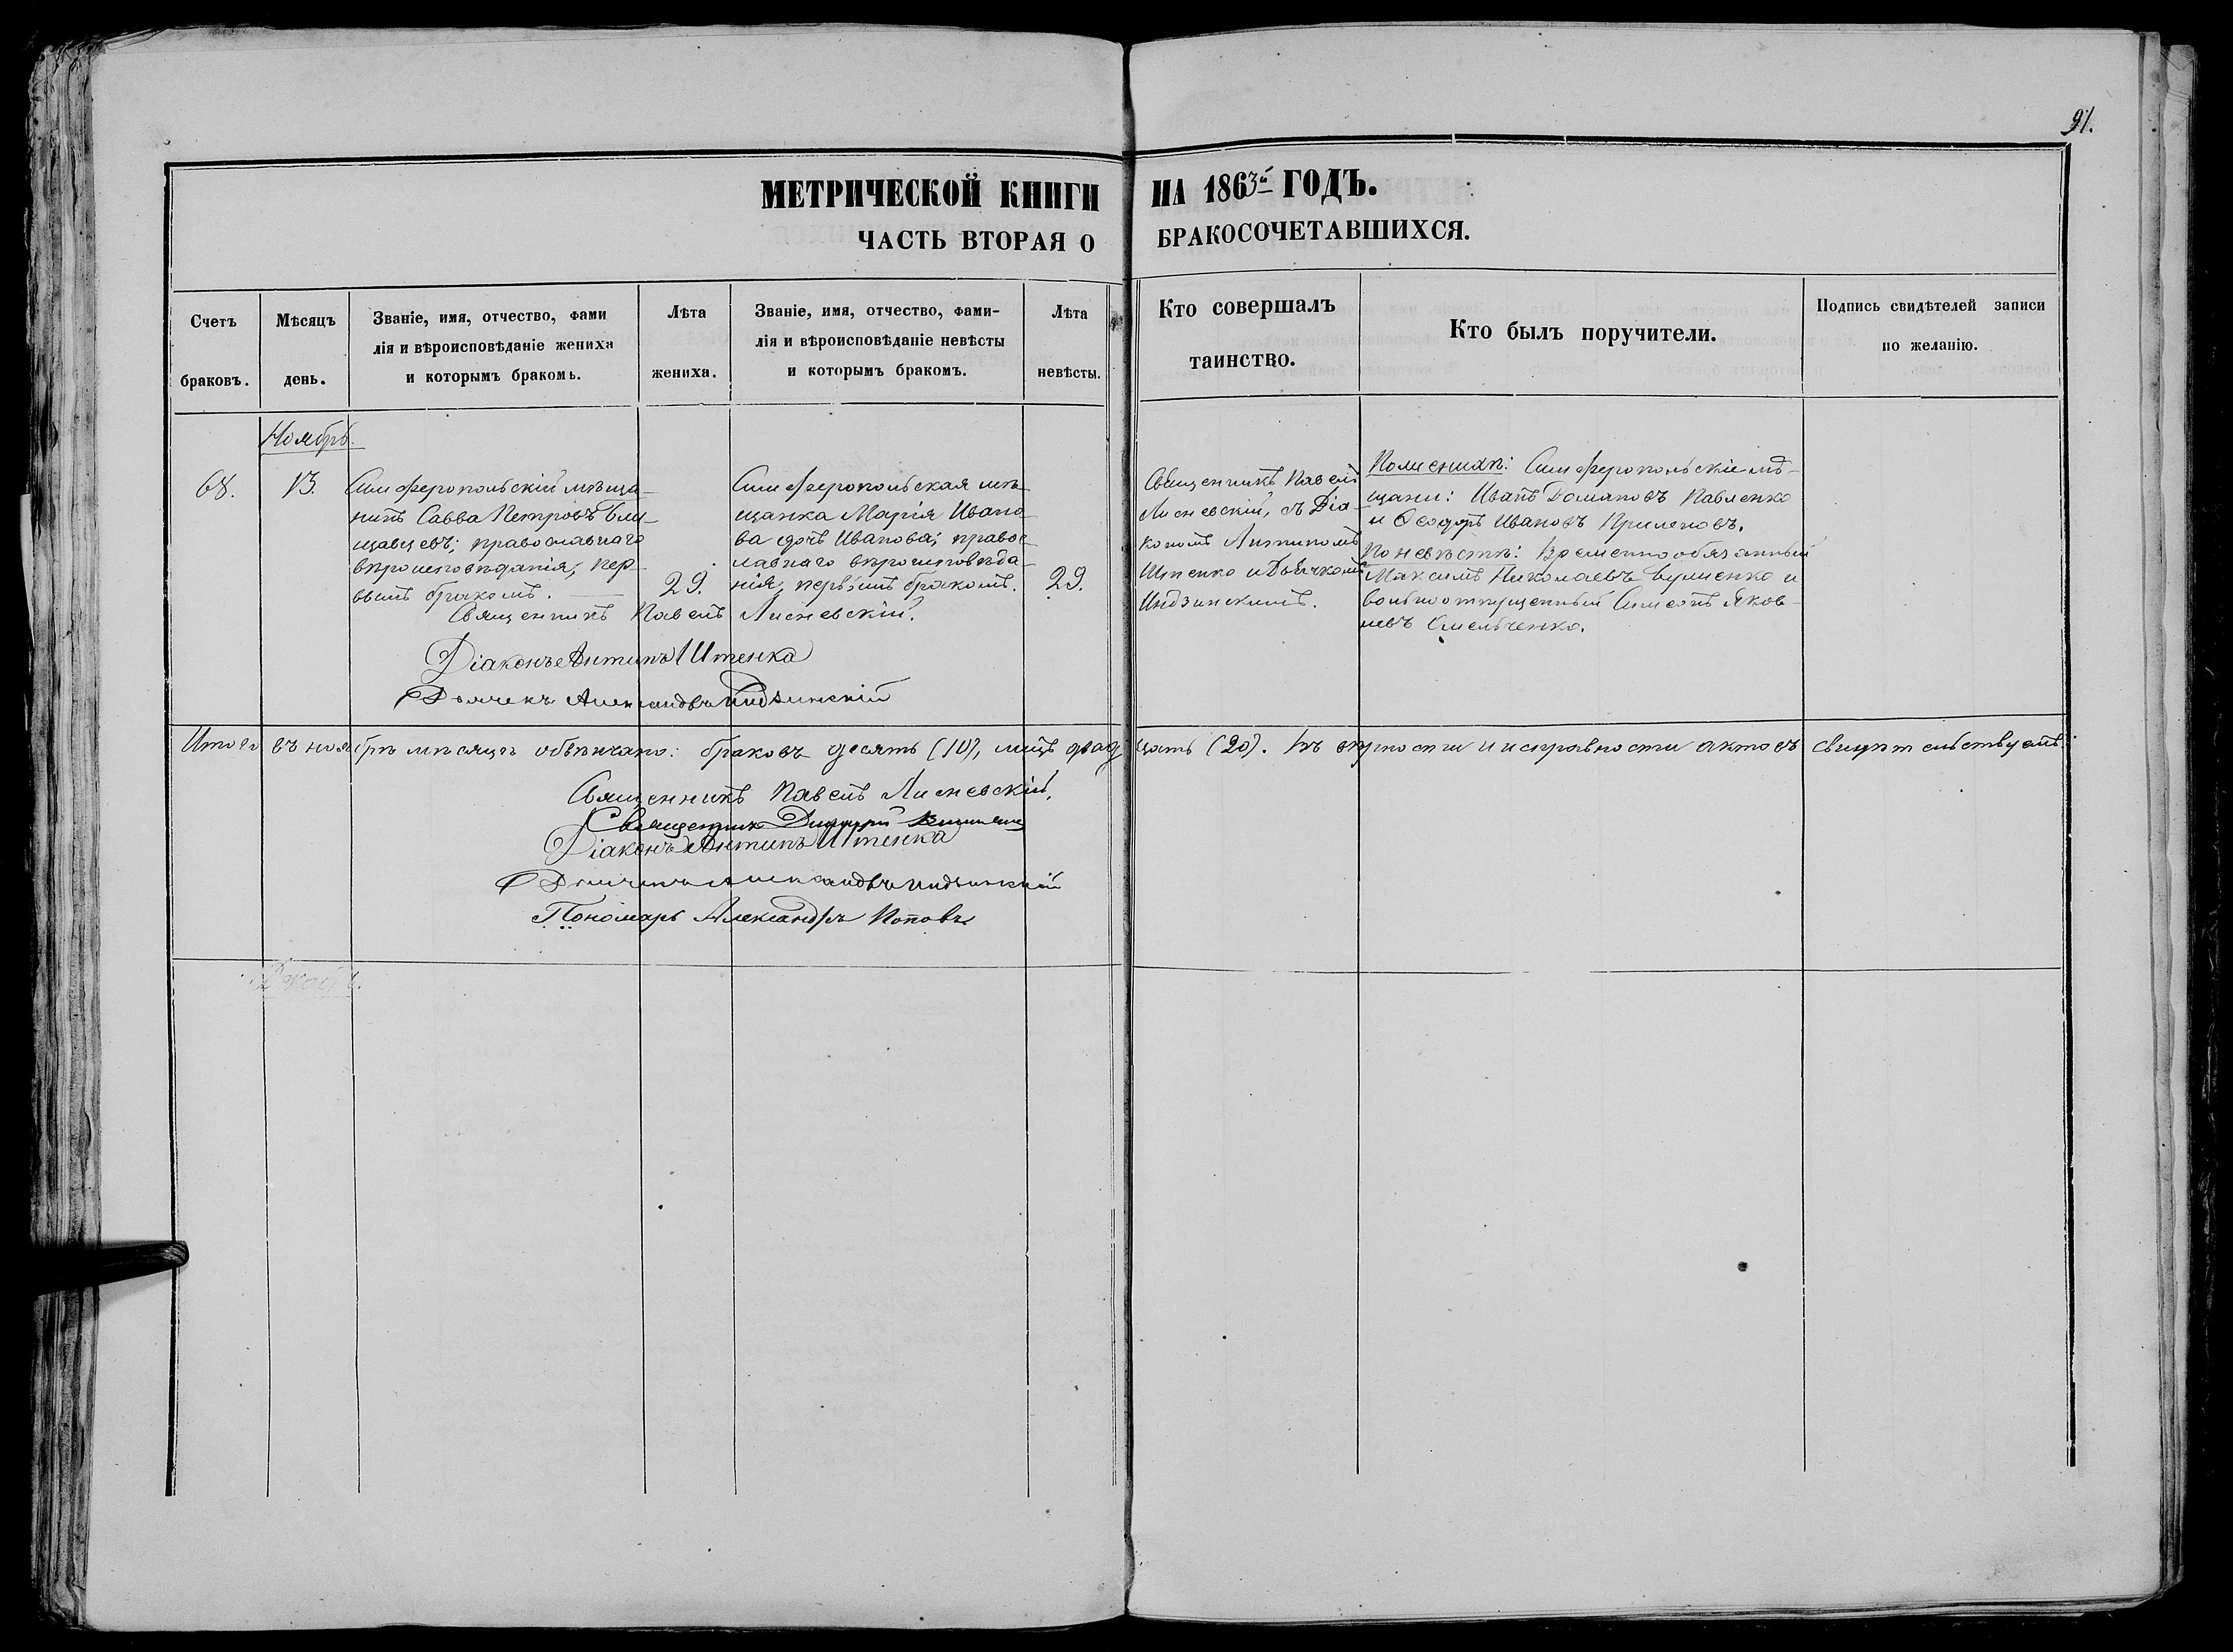 91.
МЕТРИЧЕСКОЙ КНИГИ НА 1863й ГОДЪ.
ЧАСТЬ ВТОРАЯ О БРАКОСОЧЕТАВШИХСЯ.
Счетъ
браковъ.
Мѣсяцъ
день.
Званіе, имя, отчество, фами
лія и вѣроисповѣданіе жениха
и которымъ бракомъ.
Лѣта
жениха.
Званіе, имя, отчество, фами-
лія и вѣроисповѣданіе невѣсты
и которымъ бракомъ.
Лѣта
невѣсты.
Кто совершалъ
таинство.
Кто былъ поручители.
Подпись свидѣтелей записи
по желанію.
Ноябрь.
68.
13.
Симферопольскій мѣща-
нинъ Савва Петровъ
православнаго
вѣроисповѣданія, пер-
вымъ бракомъ.
29.
Симферопольская мѣ-
щанка Марія Ивано-
ва дочь Иванова; правос-
лавнаго вѣроисповѣда-
нія, первымъ бракомъ.
29.
Священникъ Павелъ
Лисневскій, съ Діа-
кономъ Антипомъ
Штенко и Дьячкомъ
Индзинскимъ.
По женихѣ: Симферопольскіе мѣ-
щане: Иванъ Домановъ Павленко
и Ѳеодоръ Ивановъ Прилеповъ.
По невѣстѣ: Временнообязанный
Максимъ Николаевъ и
вольноотпущенный Симеонъ Яков-
левъ Омельченко.
Священникъ Павелъ Лисневскій.
Діаконъ Антипъ Штенка
Дьячекъ Александръ Индзинскій
Итого въ ноябрѣ мѣсяцѣ обвѣнчано: браковъ десять (10), лицъ двадцать (20). Въ вѣрности и исправности актовъ свидѣтельствуемъ:
Священникъ Павелъ Лисневскій,
Священникъ Димитрій
Діаконъ Антипъ Штенка
Дьячекъ Александръ Индзинскій
Пономарь Александръ Поповъ